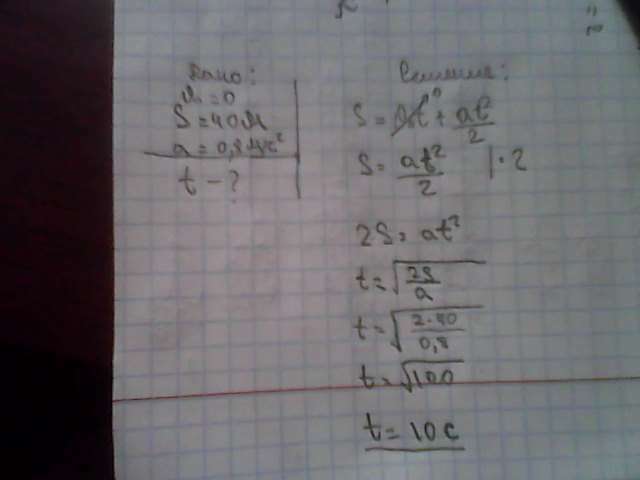 Дано:
v₀=0
S=40м
a=0,8м/с²
t-?
Решение:
S=v₀t⁰+at²/2
S=at²/2 |·2
2S=at²
t=√(2S/a)
t=√(2·40/0,8)
t=√100
t=10с